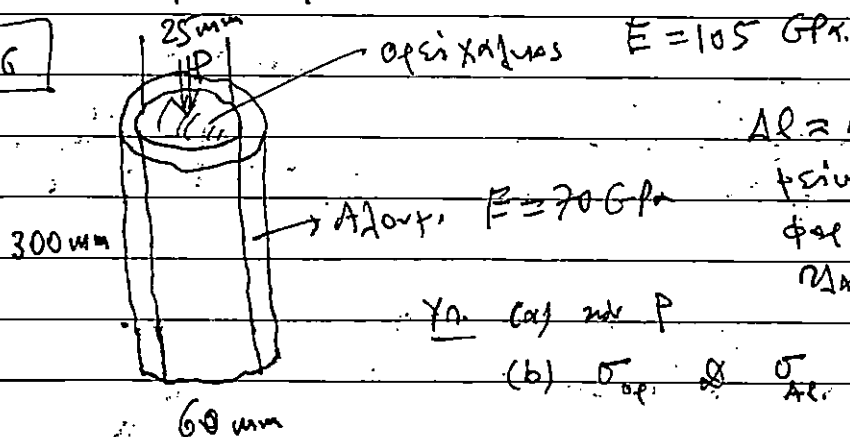 25 mm
6
P
ορείχαλκος E = 105 GPa.
Δl ≈
300 mm
Αλουμ. E = 70 GPa
Υπ. (a) P
(b) σορ. & σAl.
60 mm